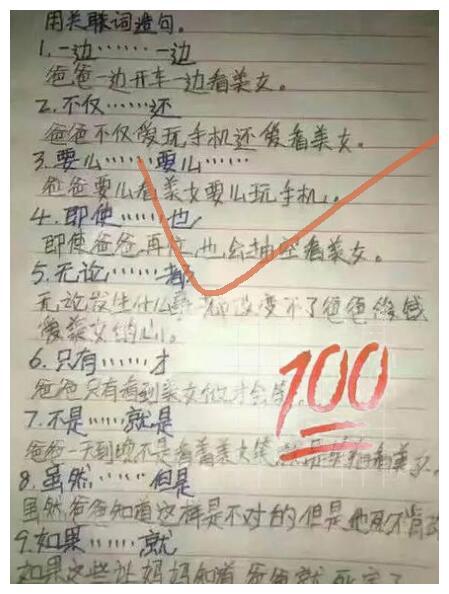 用关联词造句。
1.一边……一边
爸爸一边开车一边看美女。
2.不仅……还
爸爸不仅爱玩手机还爱看美女。
3.要么……要么……
爸爸要么看美女要么玩手机。
4.即使……也
即使爸爸再忙,也会抽空看美女。
5.无论……都
无论发生什么事都改变不了爸爸
爱美女的心。
6.只有……才
爸爸只有看到美女他才会笑
100
7.不是……就是
爸爸一天到晚不是看着美女笑,就是
8.虽然……但是
虽然爸爸知道这样是不对的但是他死不肯改
9.如果……就
如果这些让妈妈知道爸爸就死定了